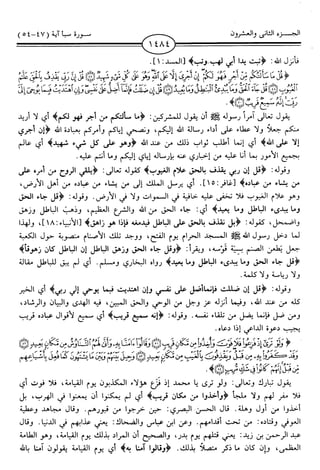 الجـزء الثانى والعشرون
١٤٨٤
سورة سبأ آية (٤٧-٥٤)
فأنزل الله: ﴿تبت يدا أبي لهب وتب﴾ [المسد: ١].
﴿قُلْ مَا سَأَلْتُكُم مِّنْ أَجْرٍ فَهُوَ لَكُمْ إِنْ أَجْرِيَ إِلَّا عَلَى اللَّهِ وَهُوَ عَلَىٰ كُلِّ شَيْءٍ شَهِيدٌ ﴿٤٧﴾ قُلْ إِنَّ رَبِّي يَقْذِفُ بِالْحَقِّ عَلَّامُ
الْغُيُوبِ ﴿٤٨﴾ قُلْ جَاءَ الْحَقُّ وَمَا يُبْدِئُ الْبَاطِلُ وَمَا يُعِيدُ ﴿٤٩﴾ قُلْ إِن ضَلَلْتُ فَإِنَّمَا أَضِلُّ عَلَىٰ نَفْسِي وَإِنِ اهْتَدَيْتُ فَبِمَا يُوحِي إِلَيَّ
رَبِّي إِنَّهُ سَمِيعٌ قَرِيبٌ ﴿٥٠﴾﴾.
يقول تعالى آمراً رسوله ﷺ أن يقول للمشركين: ﴿ما سألتكم من أجر فهو لكم﴾ أي لا أريد
منكم جعلاً ولا عطاء على أداء رسالة الله إليكم، ونصحي إياكم وأمركم بعبادة الله ﴿إن أجري
إلا على الله﴾ أي إنما أطلب ثواب ذلك من عند الله ﴿وهو على كل شيء شهيد﴾ أي عالم
بجميع الأمور بما أنا عليه من إخباري عنه بإرساله إياي إليكم وما أنتم عليه.
وقوله: ﴿قل إن ربي يقذف بالحق علام الغيوب﴾ كقوله تعالى: ﴿يلقي الروح من أمره على
من يشاء من عباده﴾ [غافر: ١٥]. أي يرسل الملك إلى من يشاء من عباده من أهل الأرض،
وهو علام الغيوب فلا تخفى عليه خافية في السموات ولا في الأرض. وقوله: ﴿قل جاء الحق
وما يبدىء الباطل وما يعيد﴾ أي: جاء الحق من الله والشرع العظيم، وذهب الباطل وزهق
واضمحل، كقوله: ﴿بل نقذف بالحق على الباطل فيدمغه فإذا هو زاهق﴾ [الأنبياء: ١٨]، ولهذا
لما دخل رسول الله ﷺ المسجد الحرام يوم الفتح، ووجد تلك الأصنام منصوبة حول الكعبة
جعل يطعن الصنم بسِيَة قَوسه، ويقرأ: ﴿وقل جاء الحق وزهق الباطل إن الباطل كان زهوقاً﴾
﴿قل جاء الحق وما يبدىء الباطل وما يعيد﴾ رواه البخاري ومسلم. أي لم يبق للباطل مقالة
ولا رياسة ولا كلمة.
وقوله: ﴿قل إن ضللت فإنما أضل على نفسي وإن اهتديت فبما يوحي إلي ربي﴾ أي الخير
كله من عند الله، وفيما أنزله عز وجل من الوحي والحق المبين، فيه الهدى والبيان والرشاد،
ومن ضل فإنما يضل من تلقاء نفسه. وقوله: ﴿إنه سميع قريب﴾ أي سميع لأقوال عباده قريب
يجيب دعوة الداعي إذا دعاه.
﴿وَلَوْ تَرَىٰ إِذْ فَزِعُوا فَلَا فَوْتَ وَأُخِذُوا مِن مَّكَانٍ قَرِيبٍ ﴿٥١﴾ وَقَالُوا آمَنَّا بِهِ وَأَنَّىٰ لَهُمُ التَّنَاوُشُ مِن مَّكَانٍ بَعِيدٍ ﴿٥٢﴾
وَقَدْ كَفَرُوا بِهِ مِن قَبْلُ وَيَقْذِفُونَ بِالْغَيْبِ مِن مَّكَانٍ بَعِيدٍ ﴿٥٣﴾ وَحِيلَ بَيْنَهُمْ وَبَيْنَ مَا يَشْتَهُونَ كَمَا فُعِلَ بِأَشْيَاعِهِم
مِّن قَبْلُ إِنَّهُمْ كَانُوا فِي شَكٍّ مُّرِيبٍ ﴿٥٤﴾﴾.
يقول تبارك وتعالى: ولو ترى يا محمد إذ فزع هؤلاء المكذبون يوم القيامة، فلا فوت أي
فلا مفر لهم ولا ملجأ ﴿وأخذوا من مكان قريب﴾ أي لم يمكنوا أن يمعنوا في الهرب، بل
أخذوا من أول وهلة. قال الحسن البصري: حين خرجوا من قبورهم. وقال مجاهد وعطية
العوفي وقتاده: من تحت أقدامهم. وعن ابن عباس والضحاك: يعني عذابهم في الدنيا. وقال
عبد الرحمن بن زيد: يعني قتلهم يوم بدر، والصحيح أن المراد بذلك يوم القيامة، وهو الطامة
العظمى، وإن كان ما ذكر متصلاً بذلك. ﴿وقالوا آمنا به﴾ أي يوم القيامة يقولون آمنا بالله